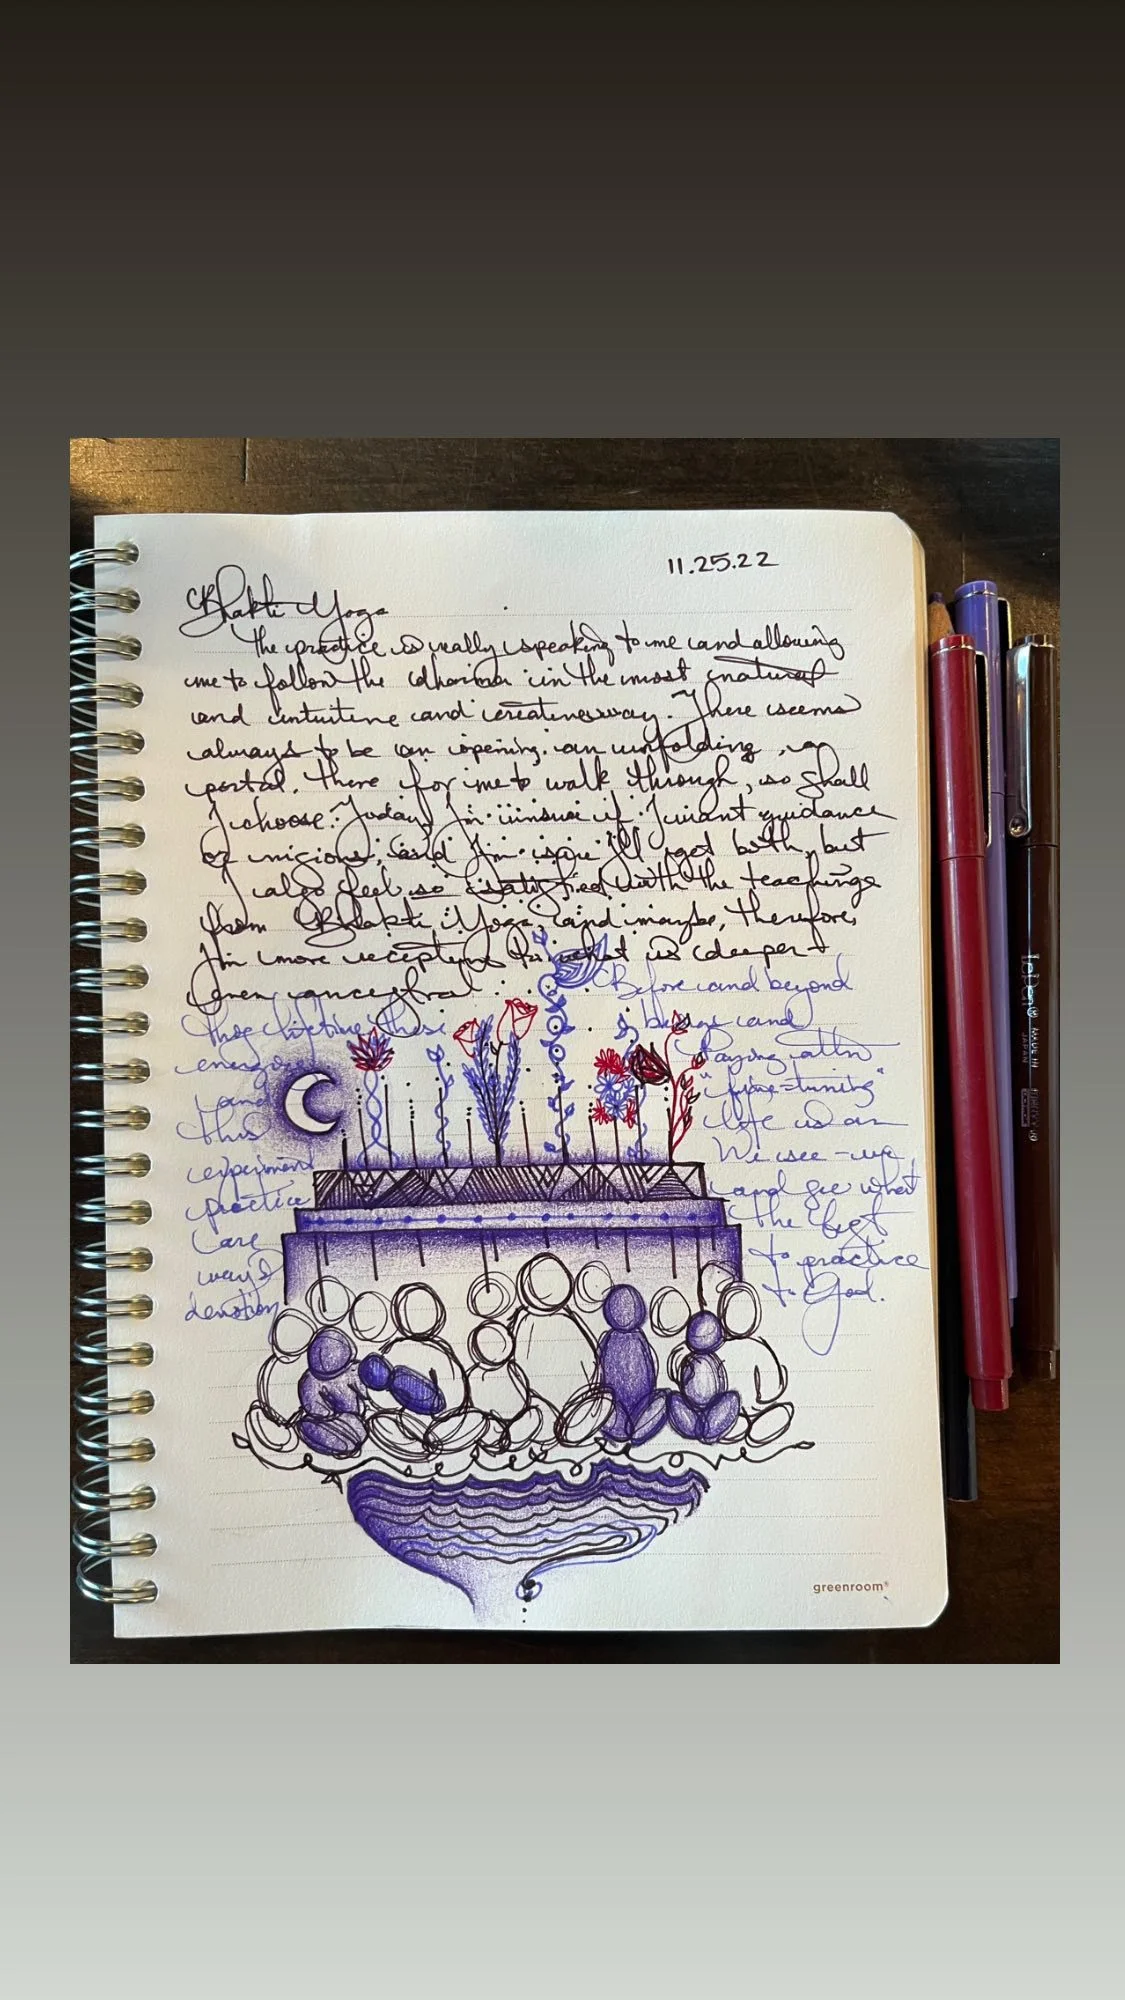 11.25.22
Bhakti Yoga
The practice is really speaking to me and allowing
me to follow the dharma in the most natural
and intuitive and creative way. There seems
always to be an opening, an unfolding, a
portal. There for me to walk through, so shall
I choose. Today I'm unsure if I want guidance
or visions, and I'm sure I'll get both, but
I also feel so satisfied with the teachings
from Bhakti Yoga, and maybe, therefore,
I'm more receptive to what is deeper +
even ancestral
Before and beyond
this lifetime these
beings and
energies
Paying attn
and
"fine-tuning"
this
life is an
experiment
We see - we
practice
and see what
are
the best
ways
to practice
devotion
to God.
greenroom®
MADE IN
JAPAN